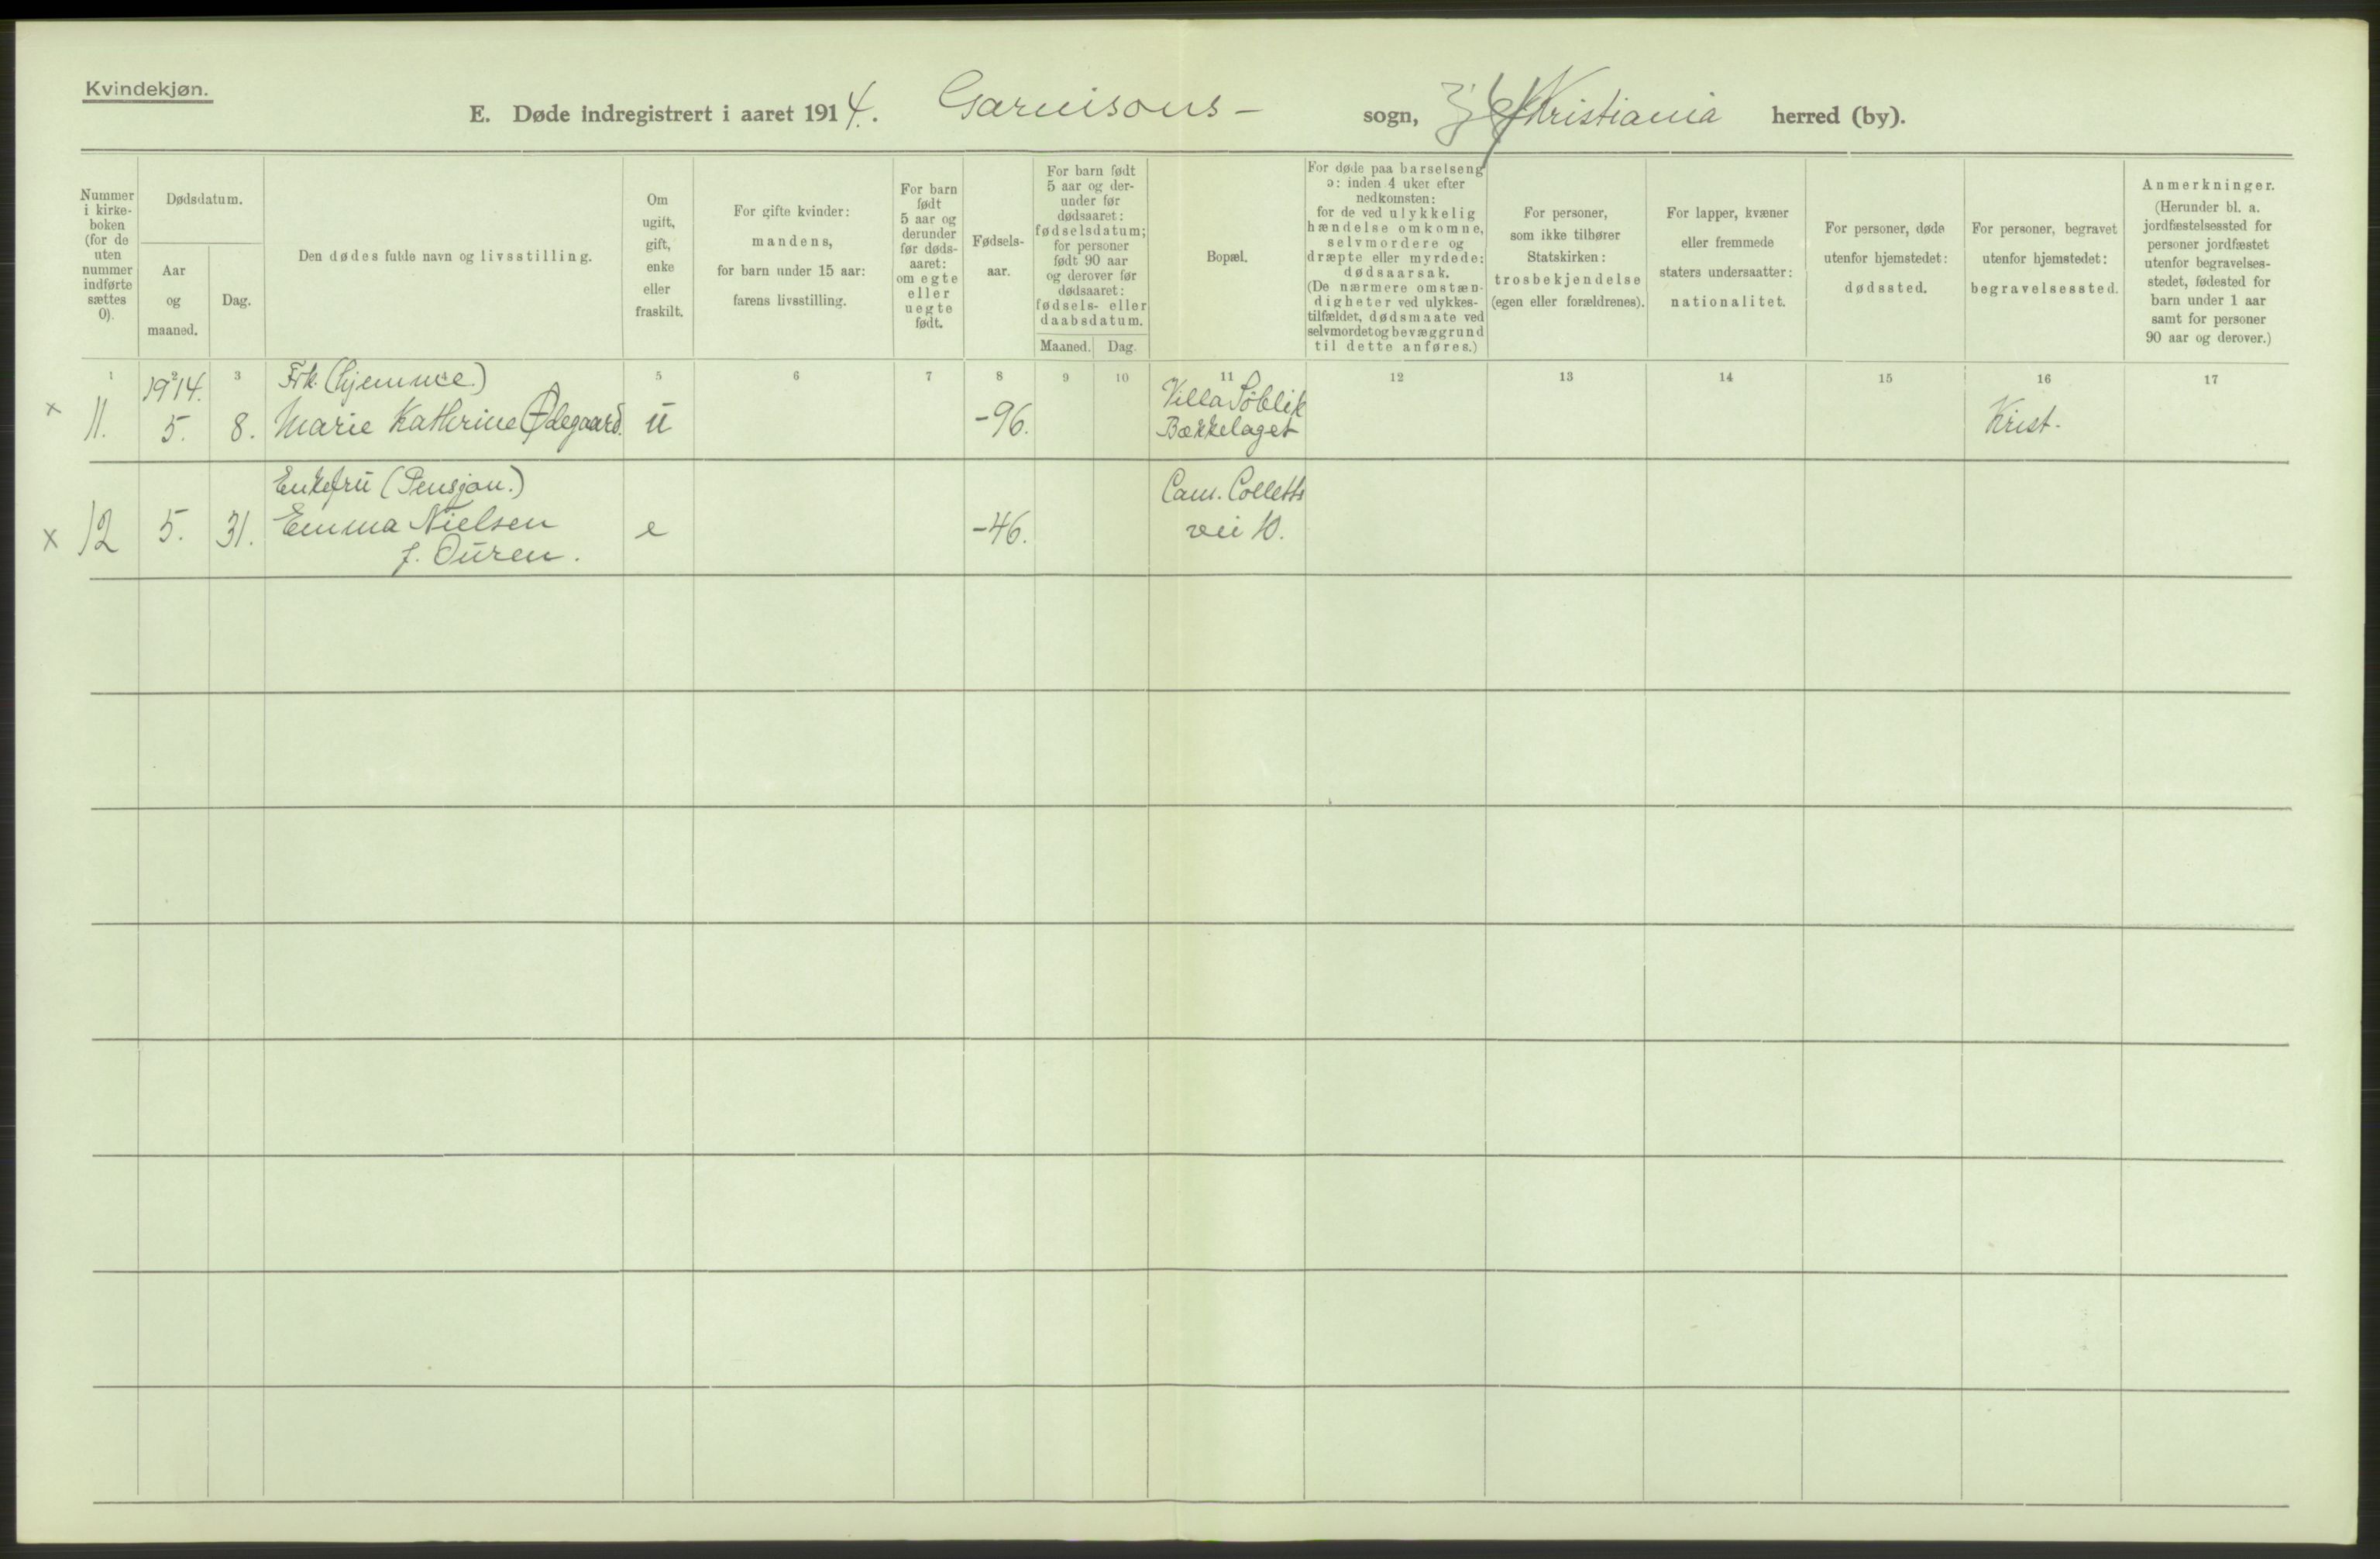 Kvindekjøn.
E. Døde indregistrert i aaret 1914. Garnisons- sogn, Kristiania herred (by).
Nummer
i kirke-
boken
(for de
uten
nummer
indførte
sættes
0).
Dødsdatum.
Aar
og
maaned.
Dag.
Den dødes fulde navn og livsstilling.
Om
ugift,
gift,
enke
eller
fraskilt.
For gifte kvinder:
mandens,
for barn under 15 aar:
farens livsstilling.
For barn
født
5 aar og
derunder
før døds-
aaret:
om egte
eller
uegte
født.
Fødsels-
aar.
For barn født
5 aar og der-
under før
dødsaaret:
fødselsdatum;
for personer
født 90 aar
og derover før
dødsaaret:
fødsels- eller
daabsdatum.
Maaned. Dag.
Bopæl.
For døde paa barselseng
ɔ: inden 4 uker efter
nedkomsten:
for de ved ulykkelig
hændelse omkomne,
selvmordere og
dræpte eller myrdede:
dødsaarsak.
(De nærmere omstæn-
digheter ved ulykkes-
tilfældet, dødsmaate ved
selvmordet og bevæggrund
til dette anføres.)
For personer,
som ikke tilhører
Statskirken:
trosbekjendelse
(egen eller forældrenes).
For lapper, kvæner
eller fremmede
staters undersaatter:
nationalitet.
For personer, døde
utenfor hjemstedet:
dødssted.
For personer, begravet
utenfor hjemstedet:
begravelsessted.
Anmerkninger.
(Herunder bl. a.
jordfæstelsessted for
personer jordfæstet
utenfor begravelses-
stedet, fødested for
barn under 1 aar
samt for personer
90 aar og derover.)
1 2 3 4 5 6 7 8 9 10 11 12 13 14 15 16 17
1914. Frk. (hjemme.) Villa Söblik
x 11. 5. 8. Marie Kathrine Ødegaard. u -96. Bækkelaget Krist.
Enkefru (Pensjon.) Cam. Colletts
x 12 5. 31. Emma Nielsen e -46. vei 10.
f. Ouren.